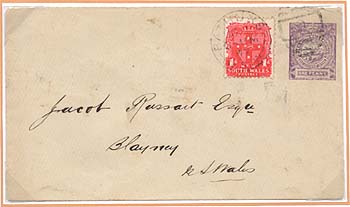 1d
SOUTH WALES
POSTAGE
ONE PENNY
Jacob Russart Esqre
Blayney
N S Wales